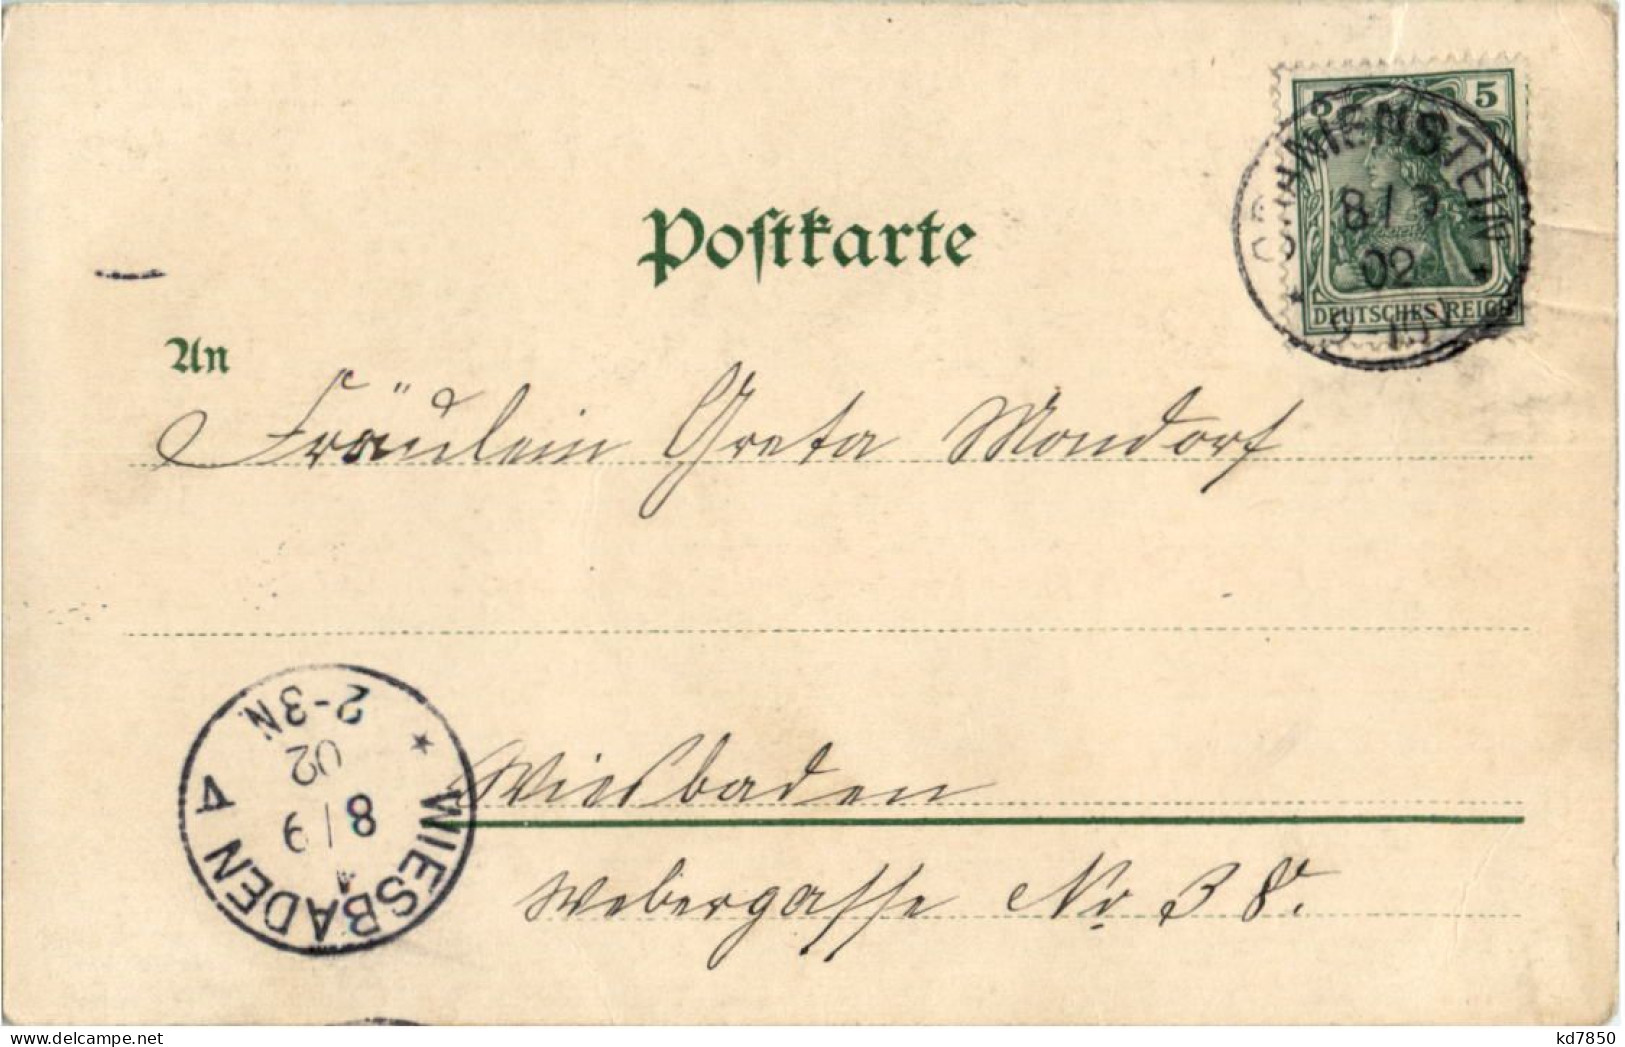 5 5
DEUTSCHES REICH
8/9
02
9-10V
Postkarte
An
Fräulein Greta Mondorf
Wiesbaden
Webergasse No 38.
WIESBADEN 4
8/9
02
2-3N
kd7850